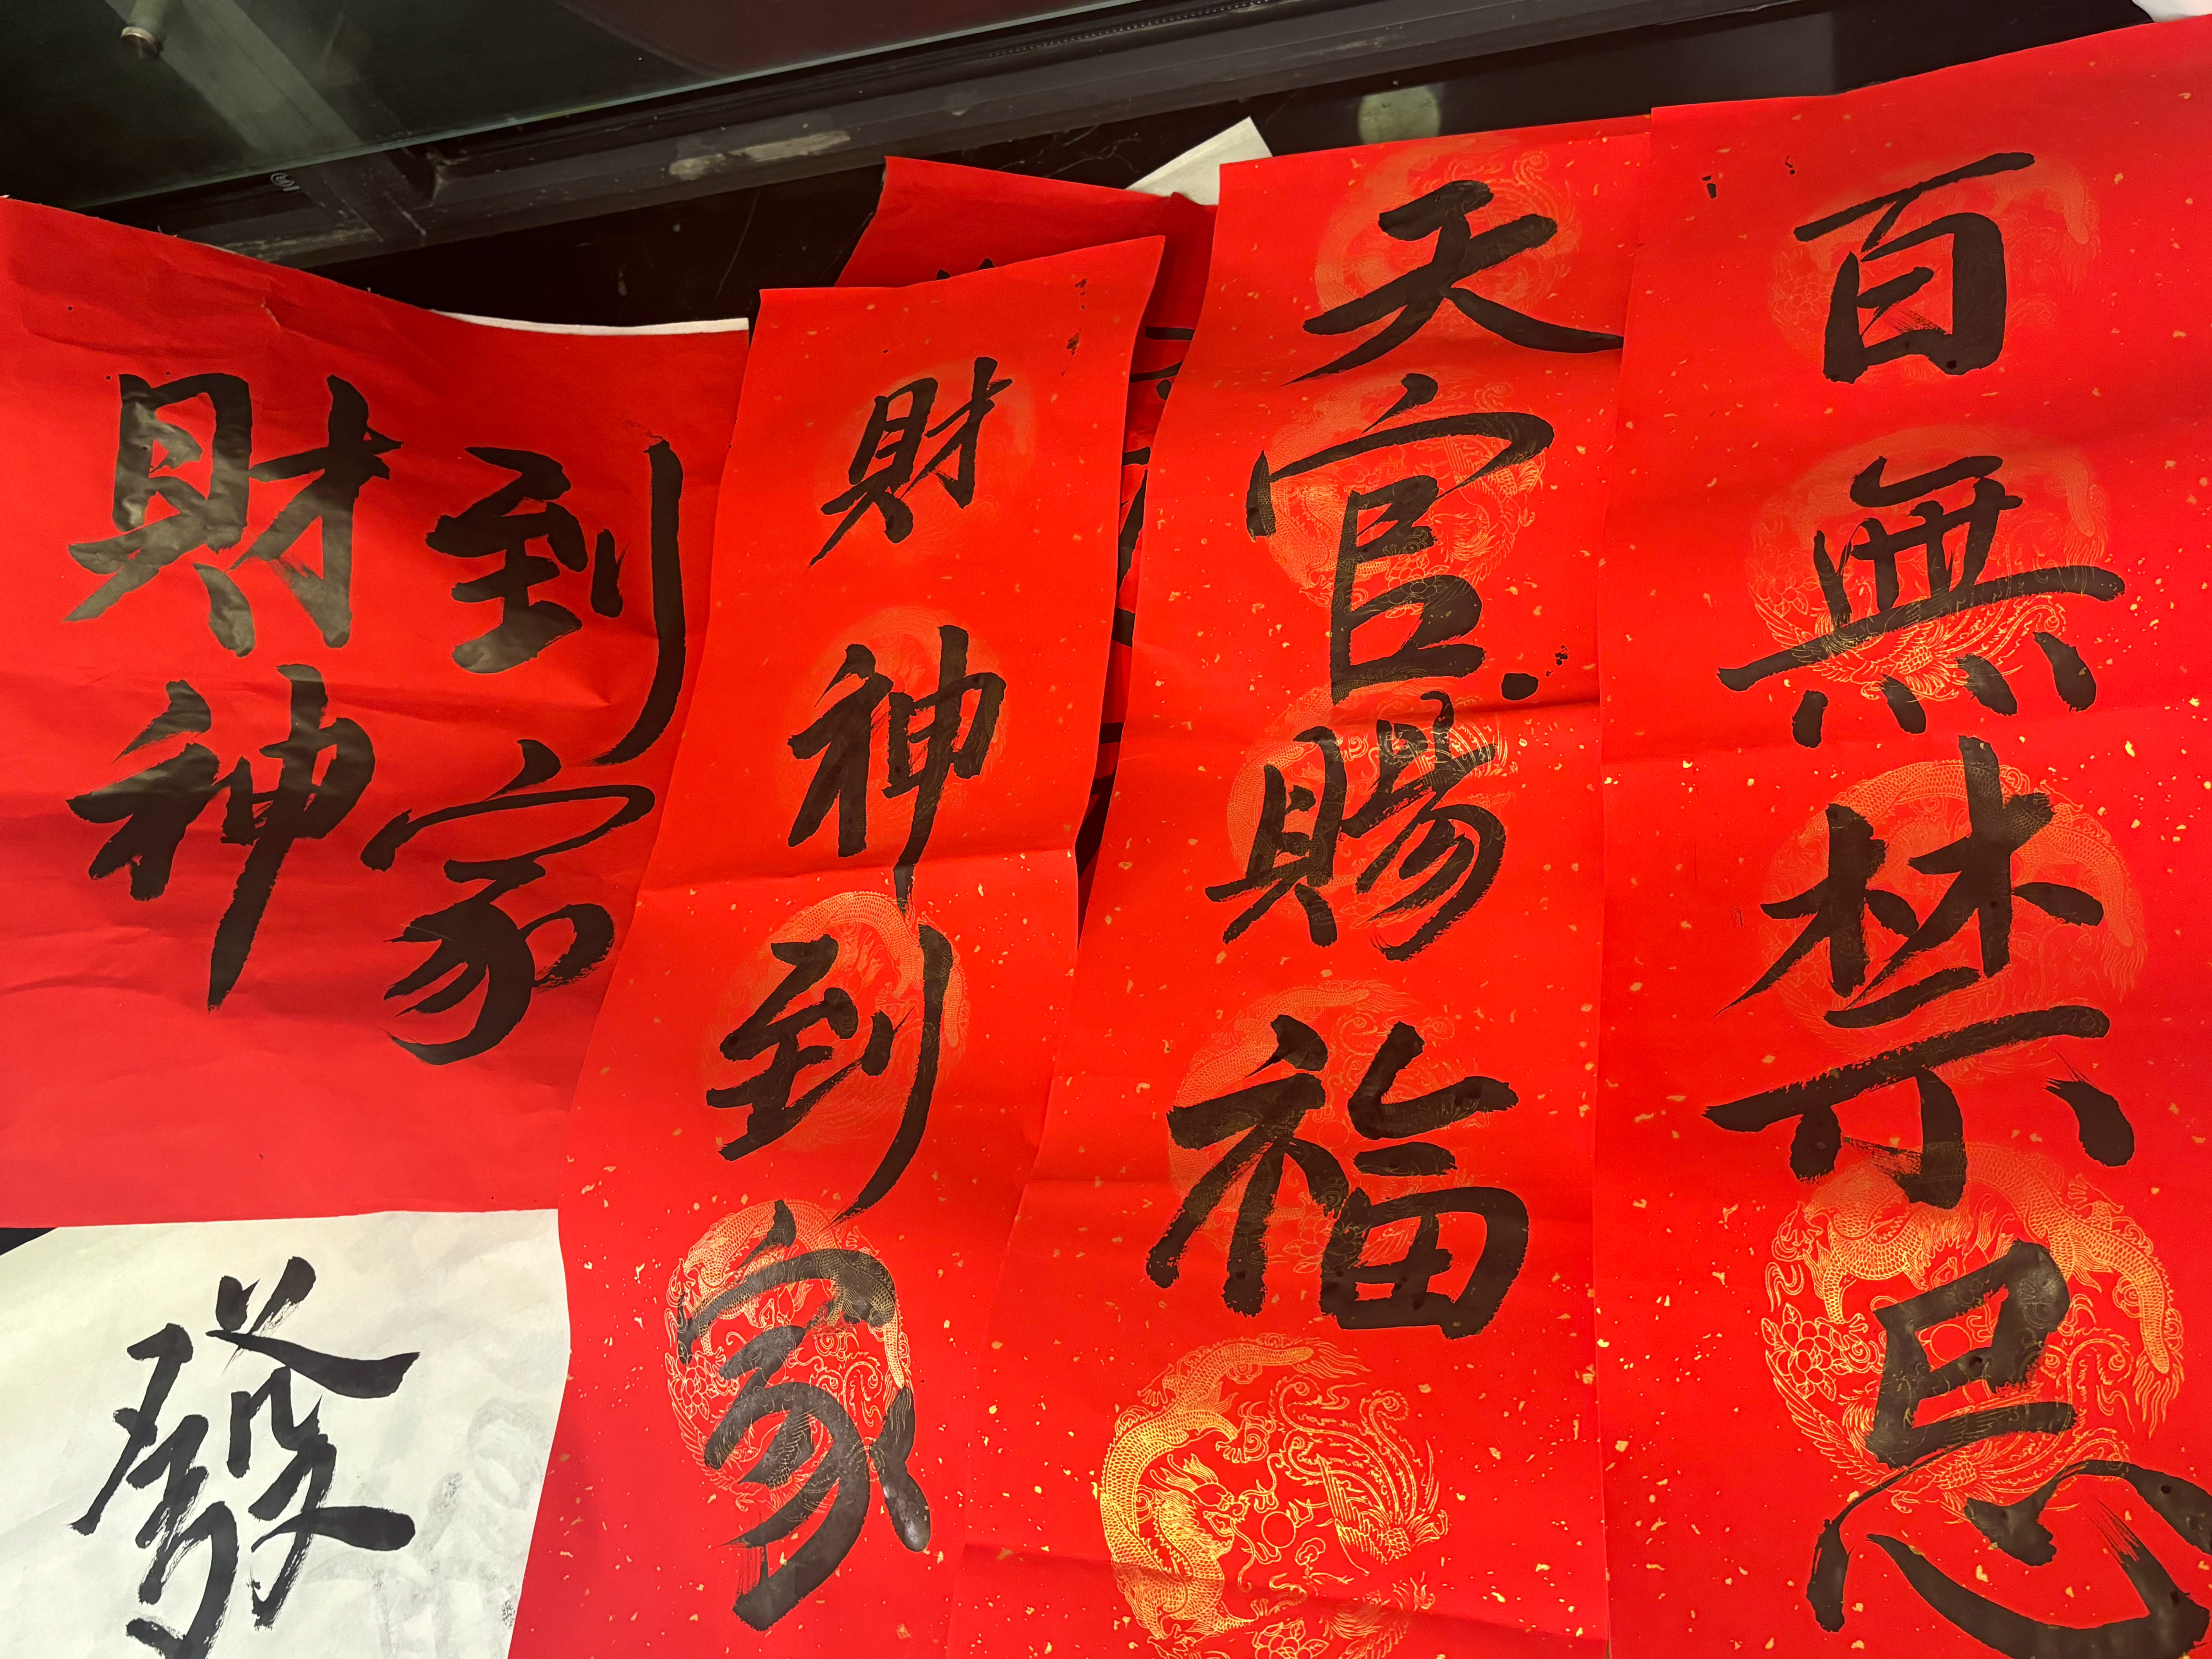 百無禁忌
天官賜福
財神到家
財神
到家
發